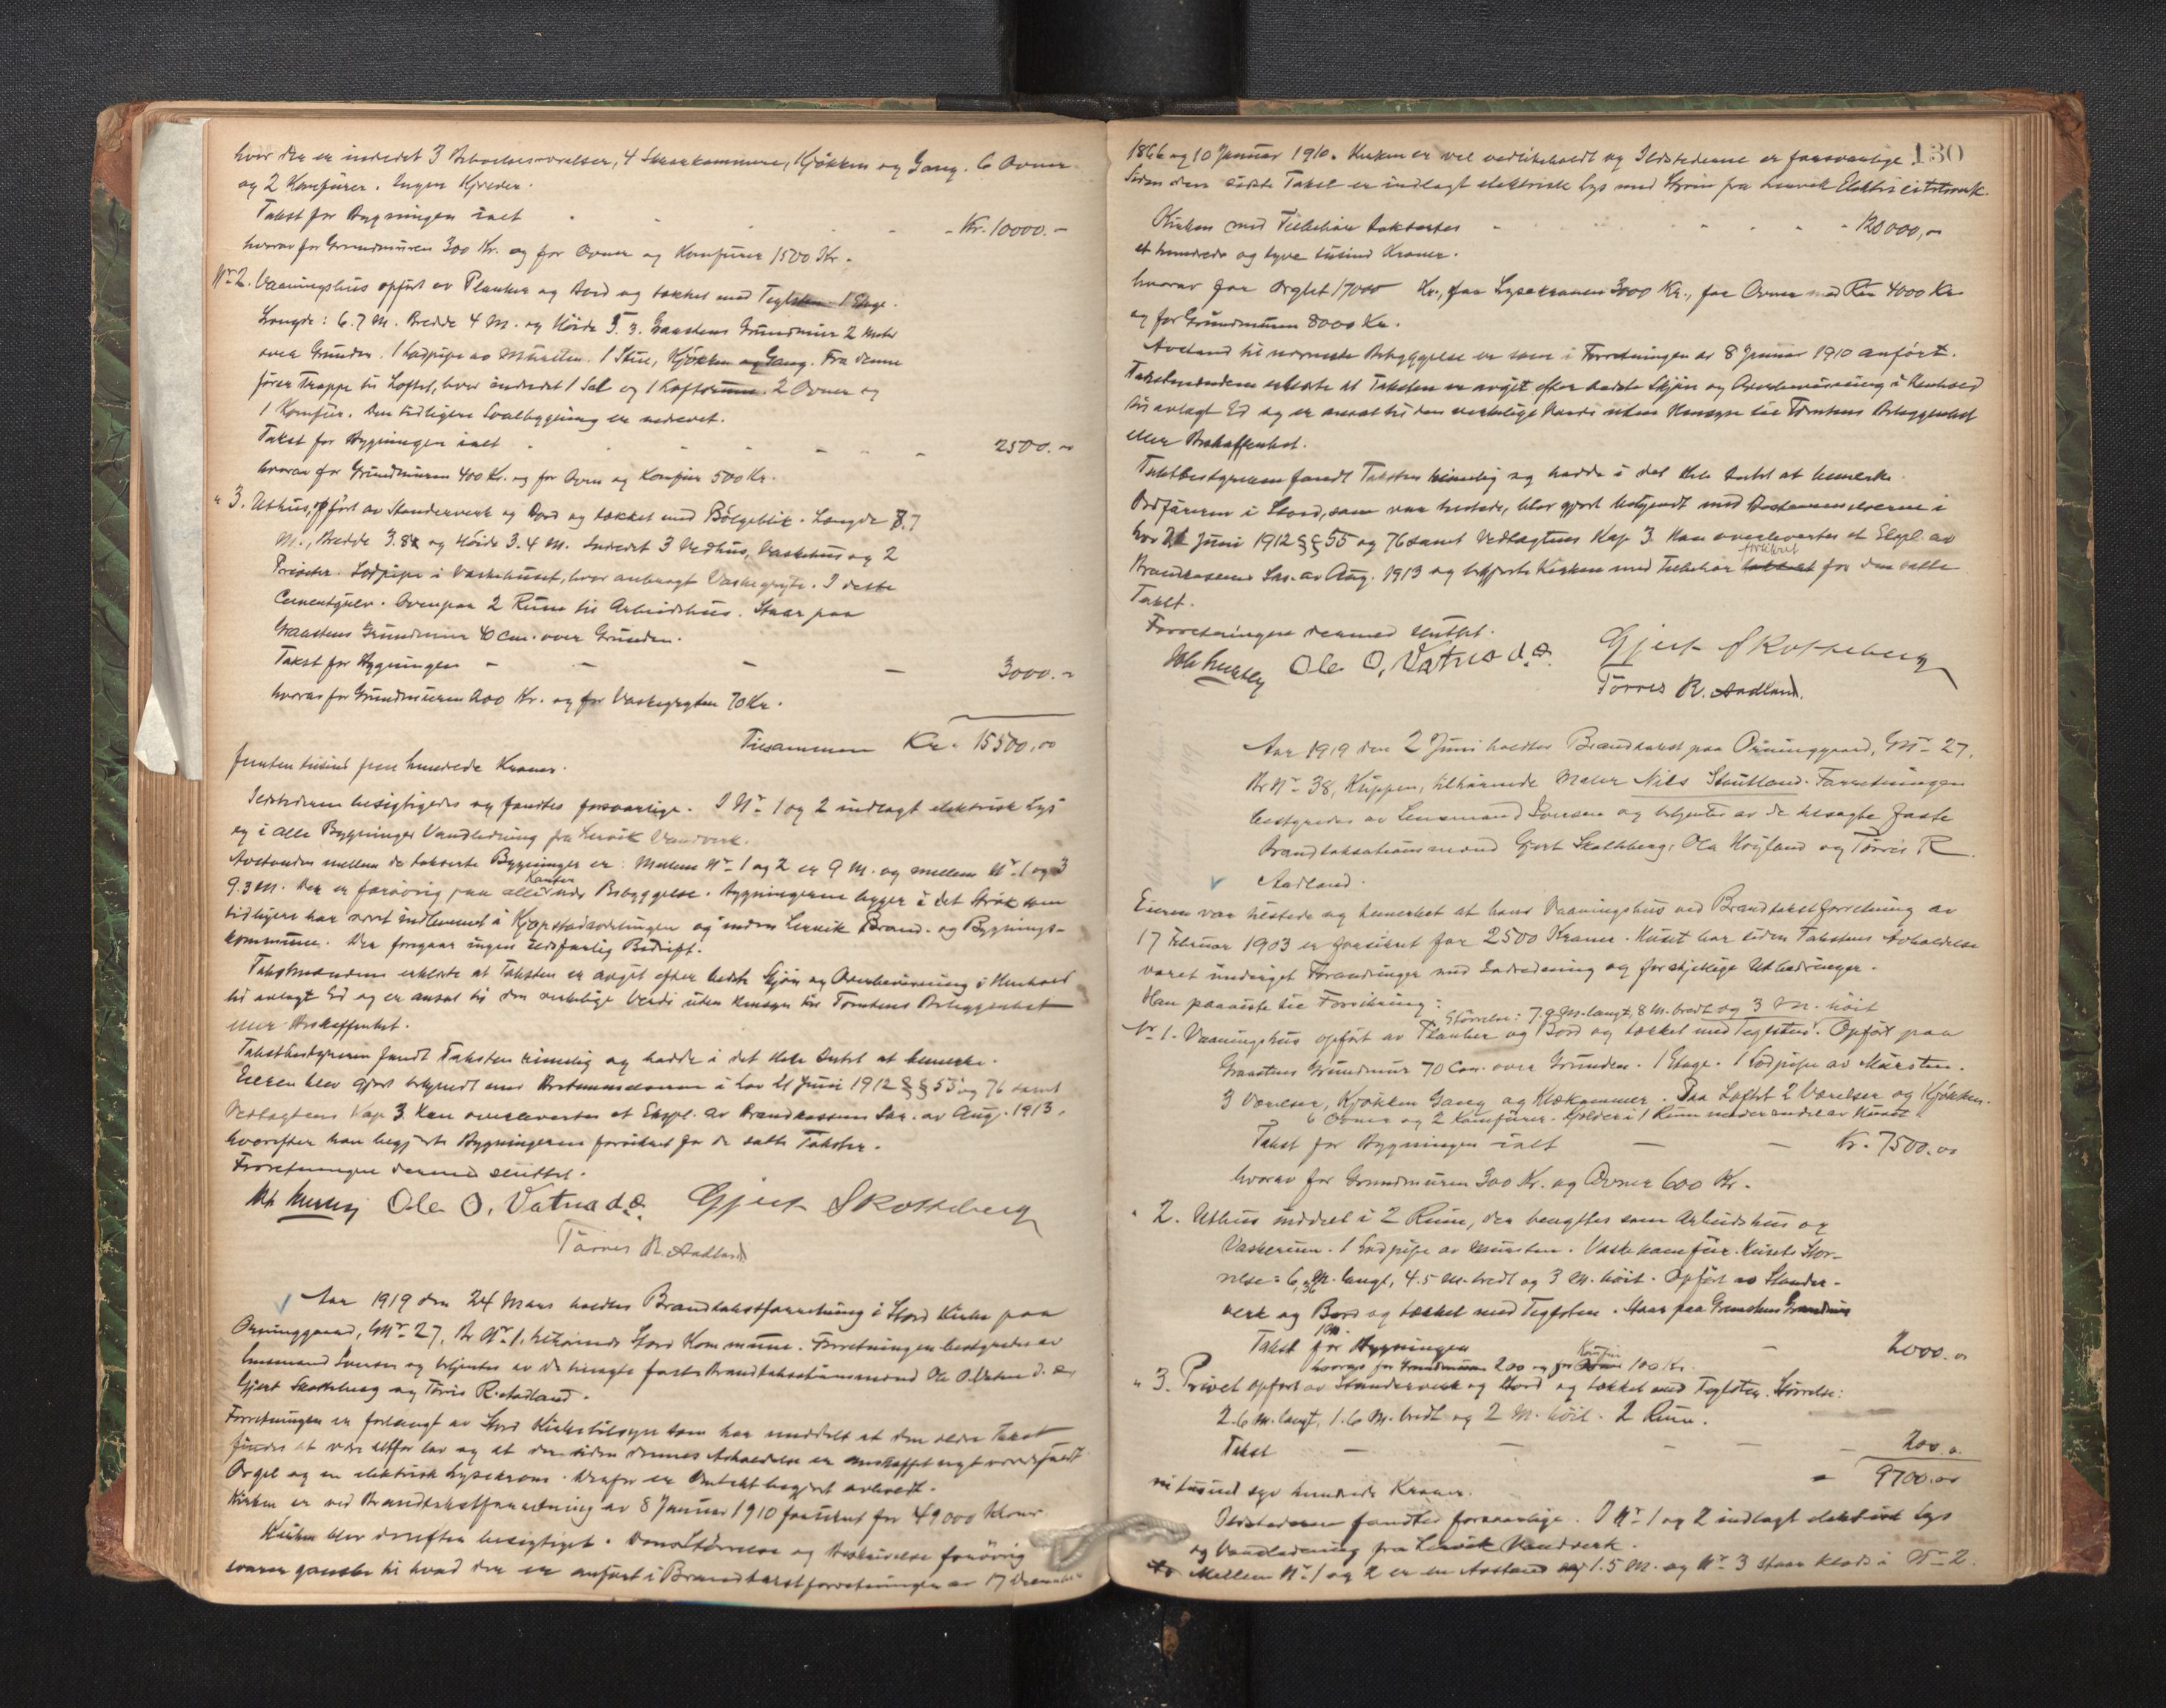 hvor der er indredet 3 Beboelsesværelser, 4 Sovekammere, Kjøkken og Gang. 6 Ovner
og 2 Komfurer. Ingen Kjelder.
Takst for Bygningen ialt - Kr. 10000.-
hvorav for Grundmuren 300 Kr. og for Ovner og Komfurer 1500 Kr.
No 2. Vaaningshus opført av Planker og Bord og tækket med Teglsten. 1 Etage.
Længde: 6.7 M. Bredde 4 M. og Høide 5.3. Graastens Grundmur 2 Meter
over Grunden. 1 Lodpipe av Mursten. 1 Stue, Kjøkken og Gang. Fra denne
fører Trappe til Loftet, hvor indredet 1 Sal og 1 Loftsrum. 2 Ovner og
1 Komfur. Den tidligere Svalbygning er nedrevet.
Takst for Bygningen ialt 2500.-
hvorav for Grundmuren 400 Kr. og for Ovne og Komfur 500 Kr.
" 3. Uthus, opført av Standerverk og Bord og tækket med Bølgeblik. Længde 8.7
M., Bredde 3.8 og Høide 3.4 M. Indredet 3 Vedhus, Vaskehus og 2
Priveter. Lodpipe i Vaskehuset, hvor anbragt Vaskegryte. I dette
Cementgulv. Ovenpaa 2 Rum til Arbeidshus. Staar paa
Graastens Grundmur 40 cm. over Grunden.
Takst for Bygningen - - - - 3000.-
hvorav for Grundmuren 200 Kr. og for Vaskegryten 70 Kr.
Tilsammen Kr. 15500,00
femten tusind fem hundrede Kroner.
Ildstederne besigtigedes og fandtes forsvarlige. I No 1 og 2 indlagt elektrisk Lys
og i alle Bygninger Vandledning fra Lervik Vandverk.
Avstanden mellem de takserte Bygninger er: Mellem No 1 og 2 er 9 M. og mellem No 1 og 3
9.3 M. Der er forøvrig paa alle Kanter Bebyggelse. Bygningerne ligger i det Strøk som
tidligere har været indlemmet i Kjøpstadavdelingen og inden Lervik Brand- og Bygnings-
kommune. Der foregaar ingen ildsfarlig Bedrift.
Takstmændene erklærte at Taksten er avgit efter bedste Skjøn og Overbevisning i Henhold
til avlagt Ed og er ansat til den virkelige Verdi uten Hensyn til Tomtens Beliggenhet
eller Beskaffenhet.
Takstbestyreren fandt Taksten rimelig og hadde i det Hele Intet at bemerke.
Eieren blev gjort bekjendt med Bestemmelserne i Lov 21 Juni 1912 §§ 55 og 76 samt
Vedtægtens Kap 3. Han overlevertes et Expl. av Brandkassens Lær. av Aug. 1913,
hvorefter han begjærte Bygningerne forsikret for de satte Takster.
Forretningen dermed sluttet.
Ole O. Vatna d.e. Gjert Skotteberg
Tørres R. Aadland
Aar 1919 den 24 Mars holdtes Brandtakstforretning i Stord Kirke paa
Orninggaard, GNo 27, Br No 1, tilhørende Stord Kommune. Forretningen bestyredes av
Lensmand Iversen og betjentes av de tilsagte faste Brandtakstationsmænd Ole O. Vatna d. e.,
Gjert Skotteberg og Tørris R. Aadland.
Forretningen er forlangt av Stord Kirketilsyn som har meddelt at den ældre Takst
findes at være altfor lav og at der siden dennes Avholdelse er anskaffet nyt værdifuldt
Orgel og en elektrisk Lysekrone. Derfor er Omtakst begjært avholdt.
Kirken er ved Brandtakstforretning av 8 Januar 1910 forsikret for 49000 Kroner.
Kirken blev derefter besigtiget. Dens Størrelse og Beskrivelse forøvrig
svarer ganske til hvad der er anført i Brandtakstforretningen av 17 December
130
1866 og 10 Januar 1910. Kirken er vel vedlikeholdt og Ildstederne er forsvarlige.
Siden den sidste Takst er indlagt elektrisk Lys med Strøm fra Lervik Elektricitetsverk.
Kirken med Tilbehør takstertes - 120000,00
et hundrede og tyve tusind Kroner.
hvorav for Orglet 17000 Kr., for Lysekronen 3000 Kr., for Ovner med Rør 4000 Kr
og for Grundmuren 8000 Kr.
Avstand til nærmeste Bebyggelse er som i Forretningen av 8 Januar 1910 anført.
Takstmændene erklærte at Taksten er avgit efter bedste Skjøn og Overbevisning i Henhold
til avlagt Ed og er ansat til den virkelige Værdi uten Hensyn til Tomtens Beliggenhet
eller Beskaffenhet.
Takstbestyreren fandt Taksten rimelig og hadde i det Hele Intet at bemerke.
Ordføreren i Stord, som var tilstede, blev gjort bekjendt med Bestemmelserne i
Lov 21 Juni 1912 §§ 55 og 76 samt Vedtægtens Kap 3. Han overlevertes et Expl. av
Brandkassens Lær. av Aug. 1913 og begjærte Kirken med Tilbehør forsikret for den satte
Takst.
Forretningen dermed sluttet.
Ole O. Vatna d.e. Gjert Skotteberg
Tørres R. Aadland.
Aar 1919 den 2 Juni holdtes Brandtakst paa Orninggaard, GNo 27,
Br No 38, Kuppen, tilhørende Maler Nils Stautland. Forretningen
bestyredes av Lensmand Iversen og betjentes av de tilsagte faste
Brandtaksationsmænd Gjert Skotteberg, Ole Høyland og Tørris R.
Aadland.
Eieren var tilstede og bemerket at hans Vaaningshus ved Brandtakstforretning av
17 Februar 1903 er forsikret for 2500 Kroner. Huset har siden Takstens Avholdelse
været undergit Forandringer med Indredning og forskjellige Utbedringer.
Han paaviste til Forsikring:
Størrelse: 7.9 M. langt, 8 M. bredt og 3 M. høit
No 1. Vaaningshus opført av Planker og Bord og tækket med Teglsten. Opført paa
Graastens Grundmur 70 Cm. over Grunden. 1 Etage. 1 Lodpipe av Mursten.
3 Værelser, Kjøkken Gang og Klækammer. Paa Loftet 2 Værelser og Kjøkken.
6 Ovner og 2 Komfurer. Kjelder i 1 Rum under endel av Huset
Takst for Bygningen ialt - - Kr. 7500.00
hvorav for Grundmuren 300 Kr. og Ovner 600 Kr.
" 2. Uthus inddelt i 2 Rum, der benyttes som Arbeidshus og
Vaskerum. 1 Lodpipe av Mursten. Vaskekomfur. Husets Stør-
relse: 6,36 M. langt, 4.5 M. bredt og 3 M. høit. Opført av Stander-
verk og Bord og tækket med Teglsten. Staar paa Graastens Grundmur
1 M.
Takst for Bygningen - 2000.00
hvorav for Grundmuren 200 og for Komfur 100 Kr.
" 3. Privet opført av Standerverk og Bord og tækket med Teglsten. Størrelse:
2.6 M. langt, 1.6 M. bredt og 2 M. høit. 2 Rum.
Takst - - - - - 200.0
- 9700.00
ni tusind syv hundrede Kroner.
Ildstederne fandtes forsvarlige. I No 1 og 2 indlagt elektrisk Lys
og Vandledning fra Lervik Vandverk.
Mellem No 1 og 2 er en Avstand av 1.5 M. og No 3 staar klods i No 2.